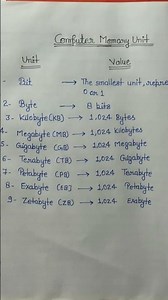 Computer Memory Unit
Unit Value
1- Bit → The smallest unit,
0 or 1
2- Byte → 8 bits
3- Kilobyte (KB) → 1,024 Bytes
4- Megabyte (MB) → 1,024 Kilobytes
5- Gigabyte (GB) → 1,024 Megabyte
6- Terabyte (TB) → 1,024 Gigabyte
7- Petabyte (PB) → 1,024 Terabyte
8- Exabyte (EB) → 1,024 Petabyte
9- Zetabyte (ZB) → 1,024 Exabyte